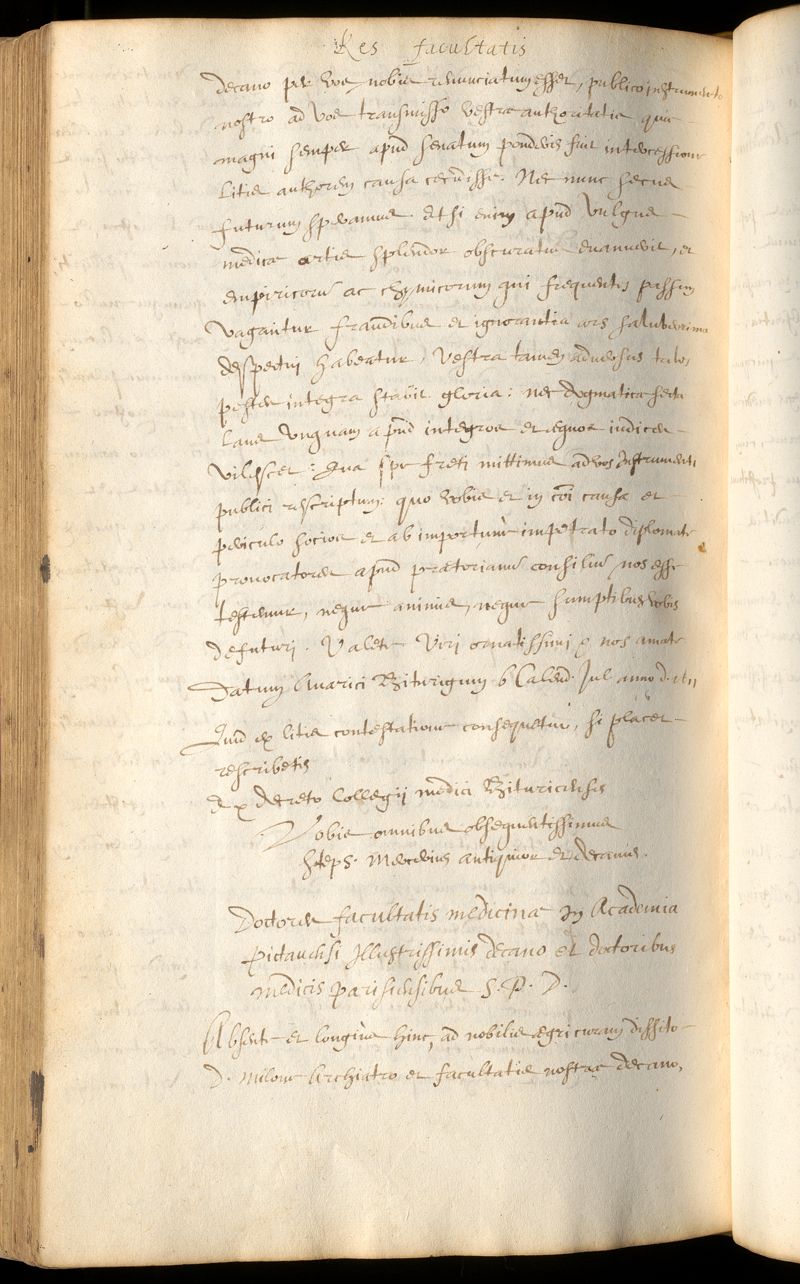 Res facultatis
decano per vos nobis renunciatum esset, publico instrumento
nostro ad vos transmisso vestrae authoritatis quae
magni semper apud senatum ponderis fuit intercessione
litis authorem causa cecidisse. Nec nunc secus
futurum speramus. Etsi enim apud vulgus
medicae artis splendor obscuratus evanuerit, et
empiricorum ac chymicorum qui frequentes passim
vagantur fraudibus et ignorantia ars saluberrima
despectui habeatur, vestra tamen adversus tales
pestes integra stabit gloria: nec dogmatica secta
unquam apud integros et aequos iudices
vilescet: Qua spe freti mittimus ad vos instrumenti
publici rescriptum: quo vobis et in coi causa et
periculo socios et ab importune impetrato diplomate
provocatores apud praetorianum consilium nos esse
testemur, neque animis, neque sumptibus vobis
defuturi. Valete viri ornatissimi & nos amate
Datum Avarici Biturigum 6 Calend. Jul. anno d. 1611
Quid ex litis contestatione consequetur, si placet
rescribetis
Ex decreto Collegij medici Bituricensis
Vobis omnibus obsequentissimus
Steph. Mercerius antiquior et decanus.
Doctores facultatis medicinae in Academia
Pictaviensi Illustrissimis decano et doctoribus
medicis parisiensibus S. P. D.
Absente et longius hinc, ad nobiles aegri curam dissito
D. Milone Archiatro et facultatis nostrae decano,